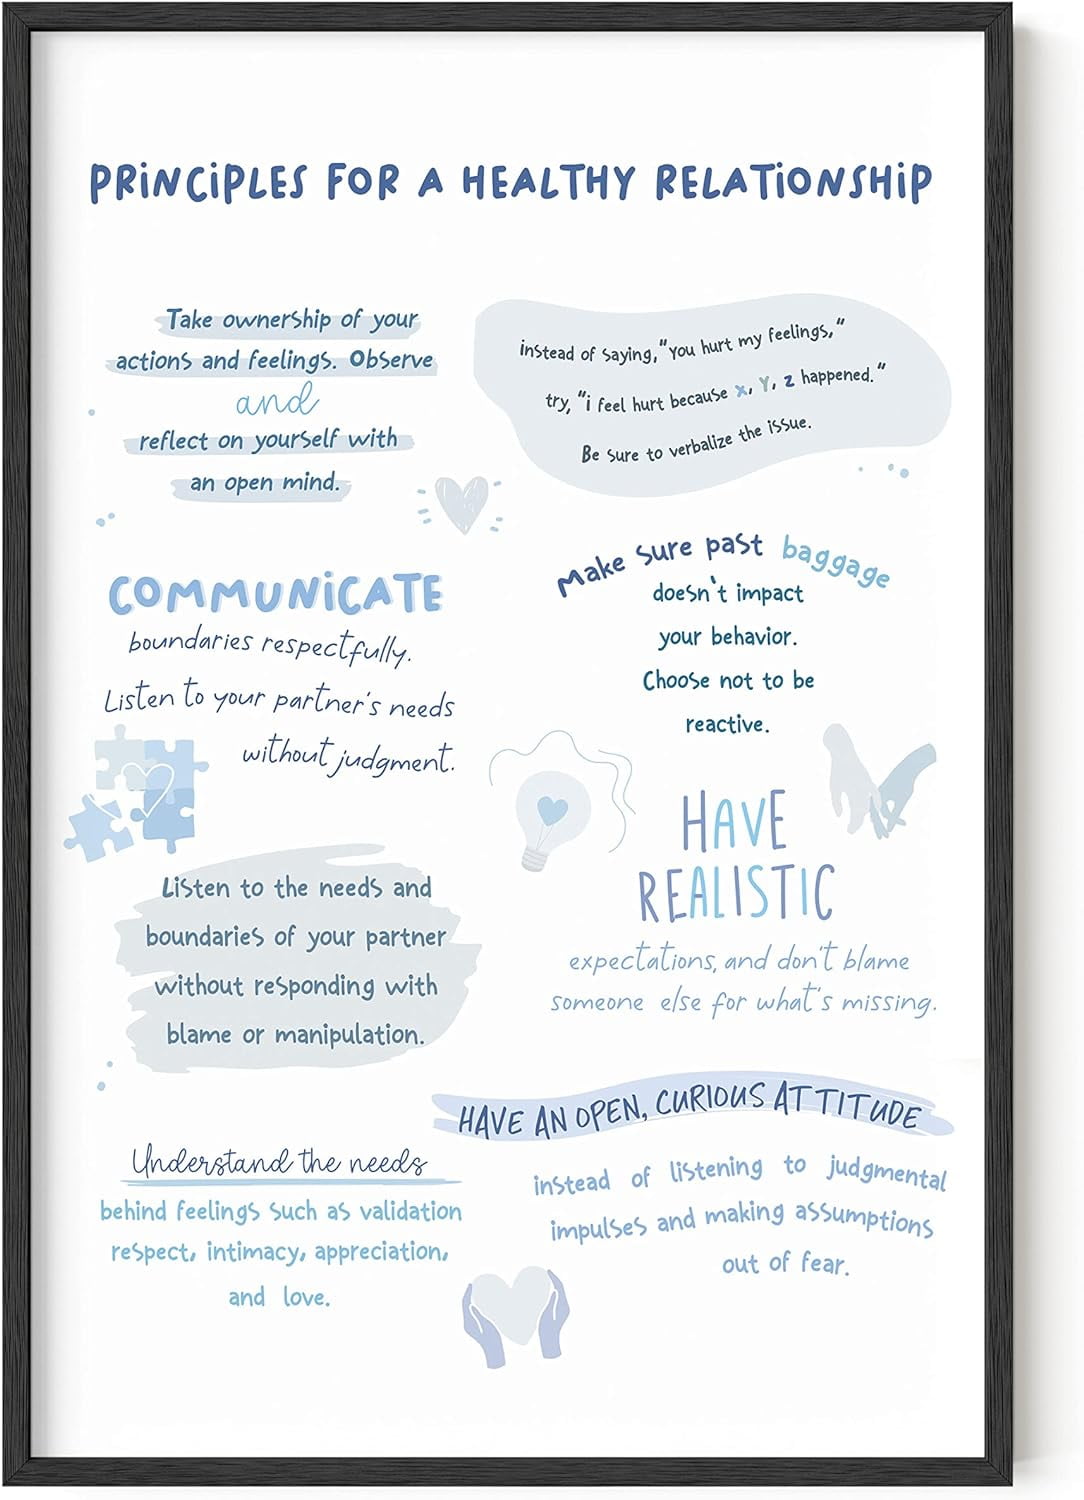 PRiNCiPLES FOR A HEALTHY RELATiONSHiP
Take ownership of your
actions and feelings. Observe
and
reflect on yourself with
an open mind.
instead of saying, "you hurt my feelings,"
try, "i feel hurt because x, Y, z happened."
Be sure to verbalize the issue.
COMMUNiCATE
boundaries respectfully.
Listen to your partner's needs
without judgment.
Make sure past baggage
doesn't impact
your behavior.
Choose not to be
reactive.
HAVE
REALISTIC
expectations, and don't blame
someone else for what's missing.
Listen to the needs and
boundaries of your partner
without responding with
blame or manipulation.
HAVE AN OPEN, CURIOUS ATTITUDE
instead of listening to judgmental
impulses and making assumptions
out of fear.
Understand the needs
behind feelings such as validation
respect, intimacy, appreciation,
and love.